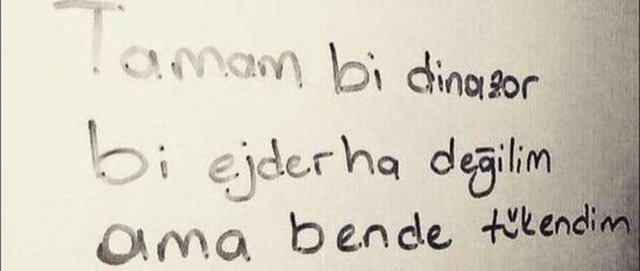 Tamam bi dinazor
bi ejderha değilim
ama bende tükendim